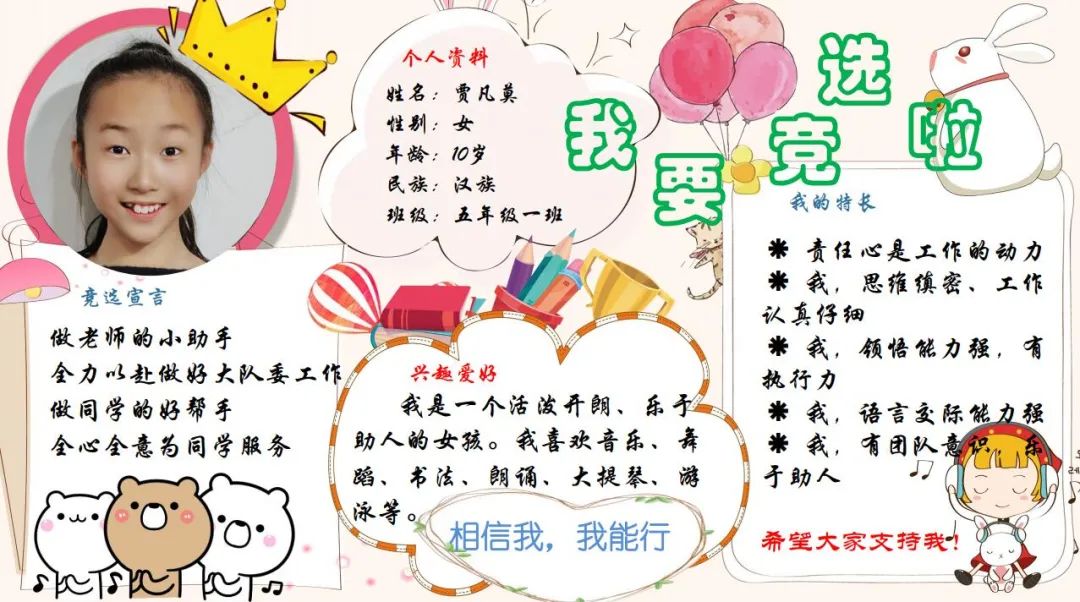 我要竞选啦
个人资料
姓名：贾凡莫
性别：女
年龄：10岁
民族：汉族
班级：五年级一班
竞选宣言
做老师的小助手
全力以赴做好大队委工作
做同学的好帮手
全心全意为同学服务
兴趣爱好
我是一个活泼开朗、乐于
助人的女孩。我喜欢音乐、舞
蹈、书法、朗诵、大提琴、游
泳等。
相信我，我能行
我的特长
❋ 责任心是工作的动力
❋ 我，思维缜密、工作
认真仔细
❋ 我，领悟能力强，有
执行力
❋ 我，语言交际能力强
❋ 我，有团队意识，乐
于助人
希望大家支持我！